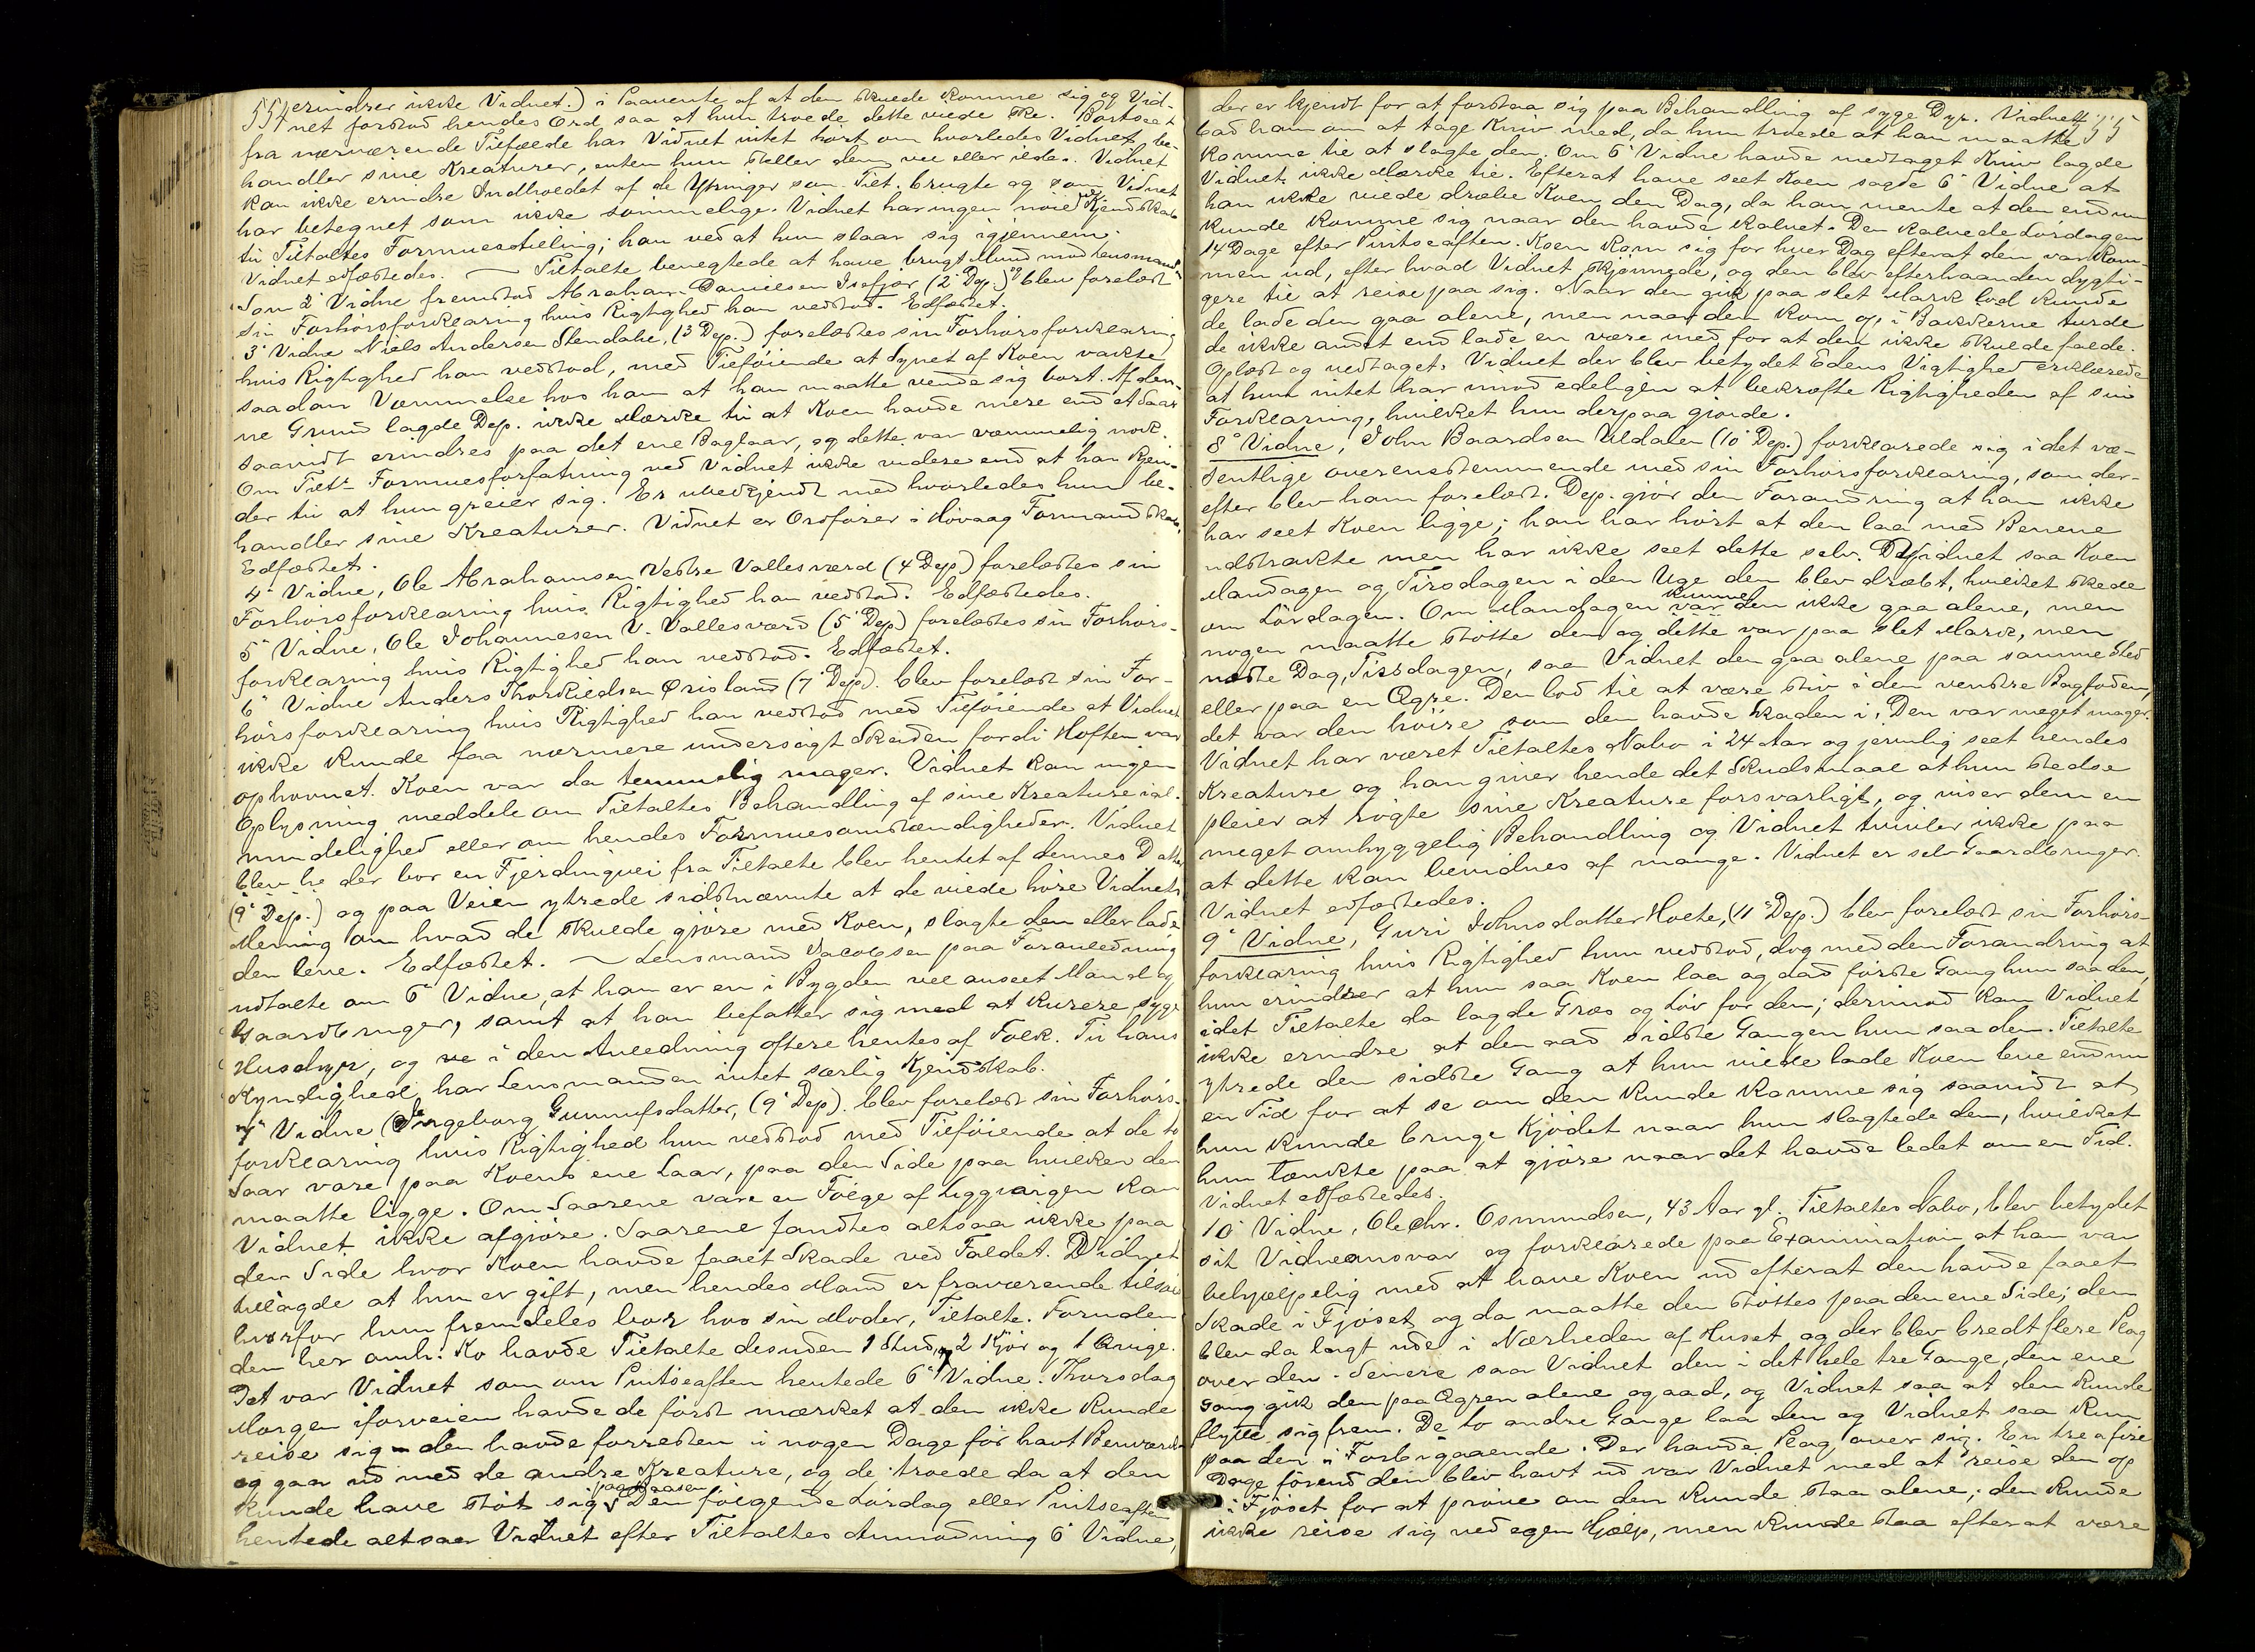 554
erindrer ikke Vidnet.) i Paavente af at den skulde komme sig og Vid-
net forstod hendes Ord saa at hun troede dette vilde ske. Bortseet
fra nærværende Tilfælde har Vidnet intet hørt om hvorledes Vidnet be-
handler sine Kreaturer, enten hun steller dem vel eller ilde. Vidnet
kan ikke erindre Indholdet af de Ytringer som Tilt. brugte og som Vidnet
har betegnet som ikke sømmelige. Vidnet har ingen nøie Kjendskab
til Tiltaltes Formuesstilling; han ved at hun slaar sig igjennem.
Vidnet edfæstedes. — Tiltalte benegtede at have brugt Mund mod Lensmanden
Som 2' Vidne fremstod Abraham Danielsen Isefjær (2' Dep.) blev forelæst
sin Forhørsforklaring hvis Rigtighed han vedstod. Edfæstet.
3' Vidne Niels Andersen Stendalie, (3' Dep.) forelæstes sin Forhørsforklaring
hvis Rigtighed han vedstod, med Tilføiende at Synet af Koen vakte
saadan Væmmelse hos ham at han maatte vende sig bort. Af den-
ne Grund lagde Dep. ikke Mærke til at Koen havde mere end et Saar
saavidt erindres paa det ene Baglaar, og dette var væmmelig nok.
Om Tilts Formuesforfatning ved Vidnet ikke videre end at han kjen-
der til at hun greier sig. Er ubekjendt med hvorledes hun be-
handler sine Kreaturer. Vidnet er Ordfører i Høvaag Formandskab.
Edfæstet.
4' Vidne, Ole Abrahamsen Vestre Vallesværd (4' Dep) forelæstes sin
Forhørsforklaring hvis Rigtighed han vedstod. Edfæstedes.
5' Vidne, Ole Johannesen V. Vallesværd (5' Dep) forelæstes sin Forhørs-
forklaring hvis Rigtighed han vedstod. Edfæstet.
6' Vidne Anders Thorkildsen Ørisland (7' Dep). blev forelæst sin For-
hørsforklaring hvis Rigtighed han vedstod med Tilføiende at Vidnet
ikke kunde faa nærmere undersøgt Skaden fordi Hoften var
ophovnet. Koen var da temmelig mager. Vidnet kan ingen
Oplysning meddele om Tiltaltes Behandling af sine Kreature i al-
mindelighed eller om hendes Formuesomstændigheder. Vidnet
blev he der bor en Fjerdingvei fra Tiltalte blev hentet af dennes Datter
(9' Dep.) og paa Veien ytrede sidstnævnte at de vilde høre Vidnets
Mening om hvad de skulde gjøre med Koen, slagte den eller lade
den leve. Edfæstet. — Lensmand Jacobsen paa Foranledning
udtalte om 6' Vidne, at han er en i Bygden vel anseet Mand og
Gaardbruger, samt at han befatter sig med at kurere syge
Husdyr, og ve i den Anledning oftere hentes af Folk. Til hans
Kyndighed har Lensmanden intet særlig Kjendskab.
7' Vidne (Ingeborg Gunnufsdatter, (9' Dep). blev forelæst sin Forhørs-
forklaring hvis Rigtighed hun vedstod med Tilføiende at de to
Saar vare paa Koens ene Laar, paa den Side paa hvilken den
maatte ligge. Om Saarene vare en Følge af Liggingen kan
Vidnet ikke afgjøre. Saarene fandtes altsaa ikke paa
den Side hvor Koen havde faaet Skade ved Faldet. Vidnet
tillagde at hun er gift, men hendes Mand er fraværende tilsøes
hvorfor hun fremdeles bor hos sin Moder, Tiltalte. Foruden
den her omh. Ko havde Tiltalte desuden 1 Stud, og 2 Kjør og 1 Qvige.
Det var Vidnet som om Pintseaften hentede 6' Vidne. Thorsdag
Morgen iforveien havde de først mærket at den ikke kunde
reise sig – den havde forresten i nogen Dage før havt Benværk
og gaar ud med de andre Kreature, og de troede da at den
kunde have stødt sig paa Baasen. Den følgende Lørdag eller Pintseaften
hentede altsaa Vidnet efter Tiltaltes Anmodning 6' Vidne,
555
der er kjendt for at forstaa sig paa Behandling af syge Dyr. Vidnet
bad ham om at tage Kniv med, da hun troede at han maatte
komme til at slagte den. Om 6' Vidne havde medtaget Kniv lagde
Vidnet ikke Mærke til. Efterat have seet Koen sagde 6' Vidne at
han ikke vilde dræbe Koen den Dag, da han mente at den endnu
kunde komme sig naar den havde kalvet. Den kalvede Lørdagen
14 Dage efter Pintseaften. Koen kom sig for hver Dag efterat den var kom-
men ud, efter hvad Vidnet skjønnede, og den blev efterhaanden dygti-
gere til at reise paa sig. Naar den gik paa slet Mark lod kunde
de lade den gaa alene, men naar den kom op i Bakkerne turde
de ikke andet end lade en være med for at den ikke skulde falde.
Oplæst og vedtaget. Vidnet der blev betydet Edens Vigtighed erklærede
at hun intet har imod edeligen at bekræfte Rigtigheden af sin
Forklaring, hvilket hun derpaa gjorde.
8' Vidne, John Baardsen Uldalen (10' Dep.) forklarede sig i det væ-
sentlige overensstemmende med sin Forhørsforklaring, som der-
efter blev ham forelæst. Dep. gjør den Forandring at han ikke
har seet Koen ligge; han har hørt at den laa med Benene
udstrakte men har ikke seet dette selv. Vidnet saa Koen
Mandagen og Tirsdagen i den Uge den blev dræbt, hvilket skede
om Lørdagen. Om Mandagen kunne den ikke gaa alene, men
nogen maatte støtte den og dette var paa slet Mark, men
næste Dag, Tirsdagen, saa Vidnet den gaa alene paa samme Sted
eller paa en Ager. Den lod til at være stiv i den venstre Bagfoden,
det var den høire som den havde Skaden i. Den var meget mager.
Vidnet har været Tiltaltes Nabo i 24 Aar og jevnlig seet hendes
Kreature og han giver hende det Skudsmaal at hun stedse
pleier at røgte sine Kreature forsvarligt, og viser dem en
meget omhyggelig Behandling og Vidnet tvivler ikke paa
at dette kan bevidnes af mange. Vidnet er selv Gaardbruger.
Vidnet edfæstedes.
9' Vidne, Guri Johnsdatter Holte, (11' Dep.) blev forelæst sin Forhørs-
forklaring hvis Rigtighed hun vedstod, dog med den Forandring at
hun erindrer at hun saa Koen laa og aad første Gang hun saa den,
idet Tiltalte da lagde Græs og Løv for den; derimod kan Vidnet
ikke erindre at den aad sidste Gangen hun saa den. Tiltalte
ytrede den sidste Gang at hun vilde lade Koen leve endnu
en Tid for at se om den kunde komme sig saavidt at
hun kunde bruge Kjødet naar hun slagtede den, hvilket
hun tænkte paa at gjøre naar det havde ledet om en Tid.
Vidnet edfæstedes.
10' Vidne, Ole Chr. Osmundsen, 43 Aar gl. Tiltaltes Nabo, blev betydet
sit Vidneansvar og forklarede paa Examination at han var
behjælpelig med at have Koen ud efterat den havde faaet
Skade i Fjøset, og da maatte den støttes paa den ene Side; den
blev da lagt ude i Nærheden af Huset og der blev bredt flere Plag
over den. Senere saa Vidnet den i det hele tre Gange, den ene
Gang gik den paa Ageren alene og aad, og Vidnet saa at den kunde
flytte sig frem. De to andre Gange laa den og Vidnet saa kun
paa den i Forbigaaende. Der havde Plag over sig. En tre a fire
Dage førend den blev havt ud var Vidnet med at reise den op
i Fjøset for at prøve om den kunde staa alene; den kunde
ikke reise sig ved egen Hjælp, men kunde staa efterat være